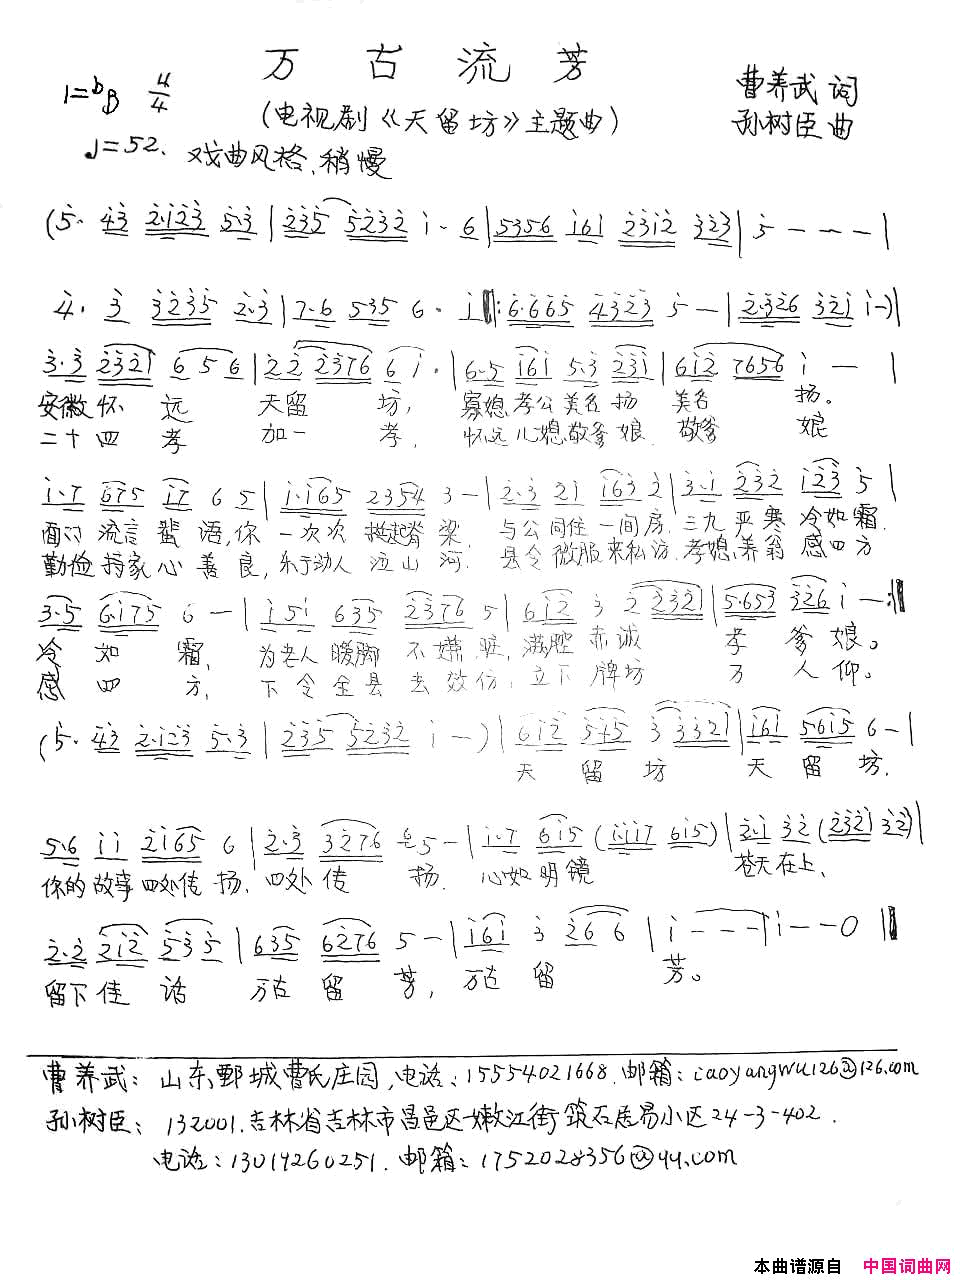 万古流芳
1=bB 4/4
(电视剧《天留坊》主题曲)
曹养武 词
孙树臣 曲
♩=52. 戏曲风格,稍慢
(5· 43 2·123 5·3 | 235 5232 1·6 | 5356 161 2312 323 | 5 - - - |
4· 3 3235 2·3 | 7·6 535 6· 1 ‖: 6·665 4323 5 - | 2·326 321 1 -) |
3·3 2321 6 5 6 | 2 2 2376 6 1· | 6·5 161 5·3 231 | 612 7656 1 - |
安徽怀远 天留坊, 寡媳孝公美名扬 美名扬。
二十四孝 加一孝, 怀远儿媳敬爹娘 敬爹娘
1·7 675 17 6 5 | 1·165 2354 3 - | 2·3 21 163 2 | 3·1 232 123 5 |
面对流言蜚语,你一次次挺起脊梁, 与公同住一间房, 三九严寒冷如霜
勤俭持家心善良,乐于助人泣山河. 县令微服来私访,孝媳养翁感四方
3·5 6·175 6 - | 1 51 635 2376 5 | 612 3 2 232 | 5·653 326 1 - :‖
冷如霜, 为老人暖脚不嫌脏, 满腔赤诚孝爹娘。
感四方, 下令全县去效仿, 立下牌坊万人仰。
(5· 43 2·123 5·3 | 235 5232 1 -) | 612 545 3 3321 | 161 5·615 6 - |
天留坊 天留坊.
5·6 11 2165 6 | 2·3 3276 6 5 - | 1·7 615 (1·117 615) | 2·1 32 (2321 32) |
你的故事四处传扬,四处传扬. 心如明镜 苍天在上,
2·2 212 535 | 635 6276 5 - | 161 3 266 | 1 - - - | 1 - - 0 ‖
留下佳话 万古留芳, 万古留芳。
曹养武: 山东鄄城曹氏庄园,电话:15554021668.邮箱:caoyangwu126@126.com
孙树臣: 132001.吉林省吉林市昌邑区嫩江街筑石居易小区24-3-402.
电话:13019260251.邮箱:1752028356@qq.com
本曲谱源自 中国词曲网